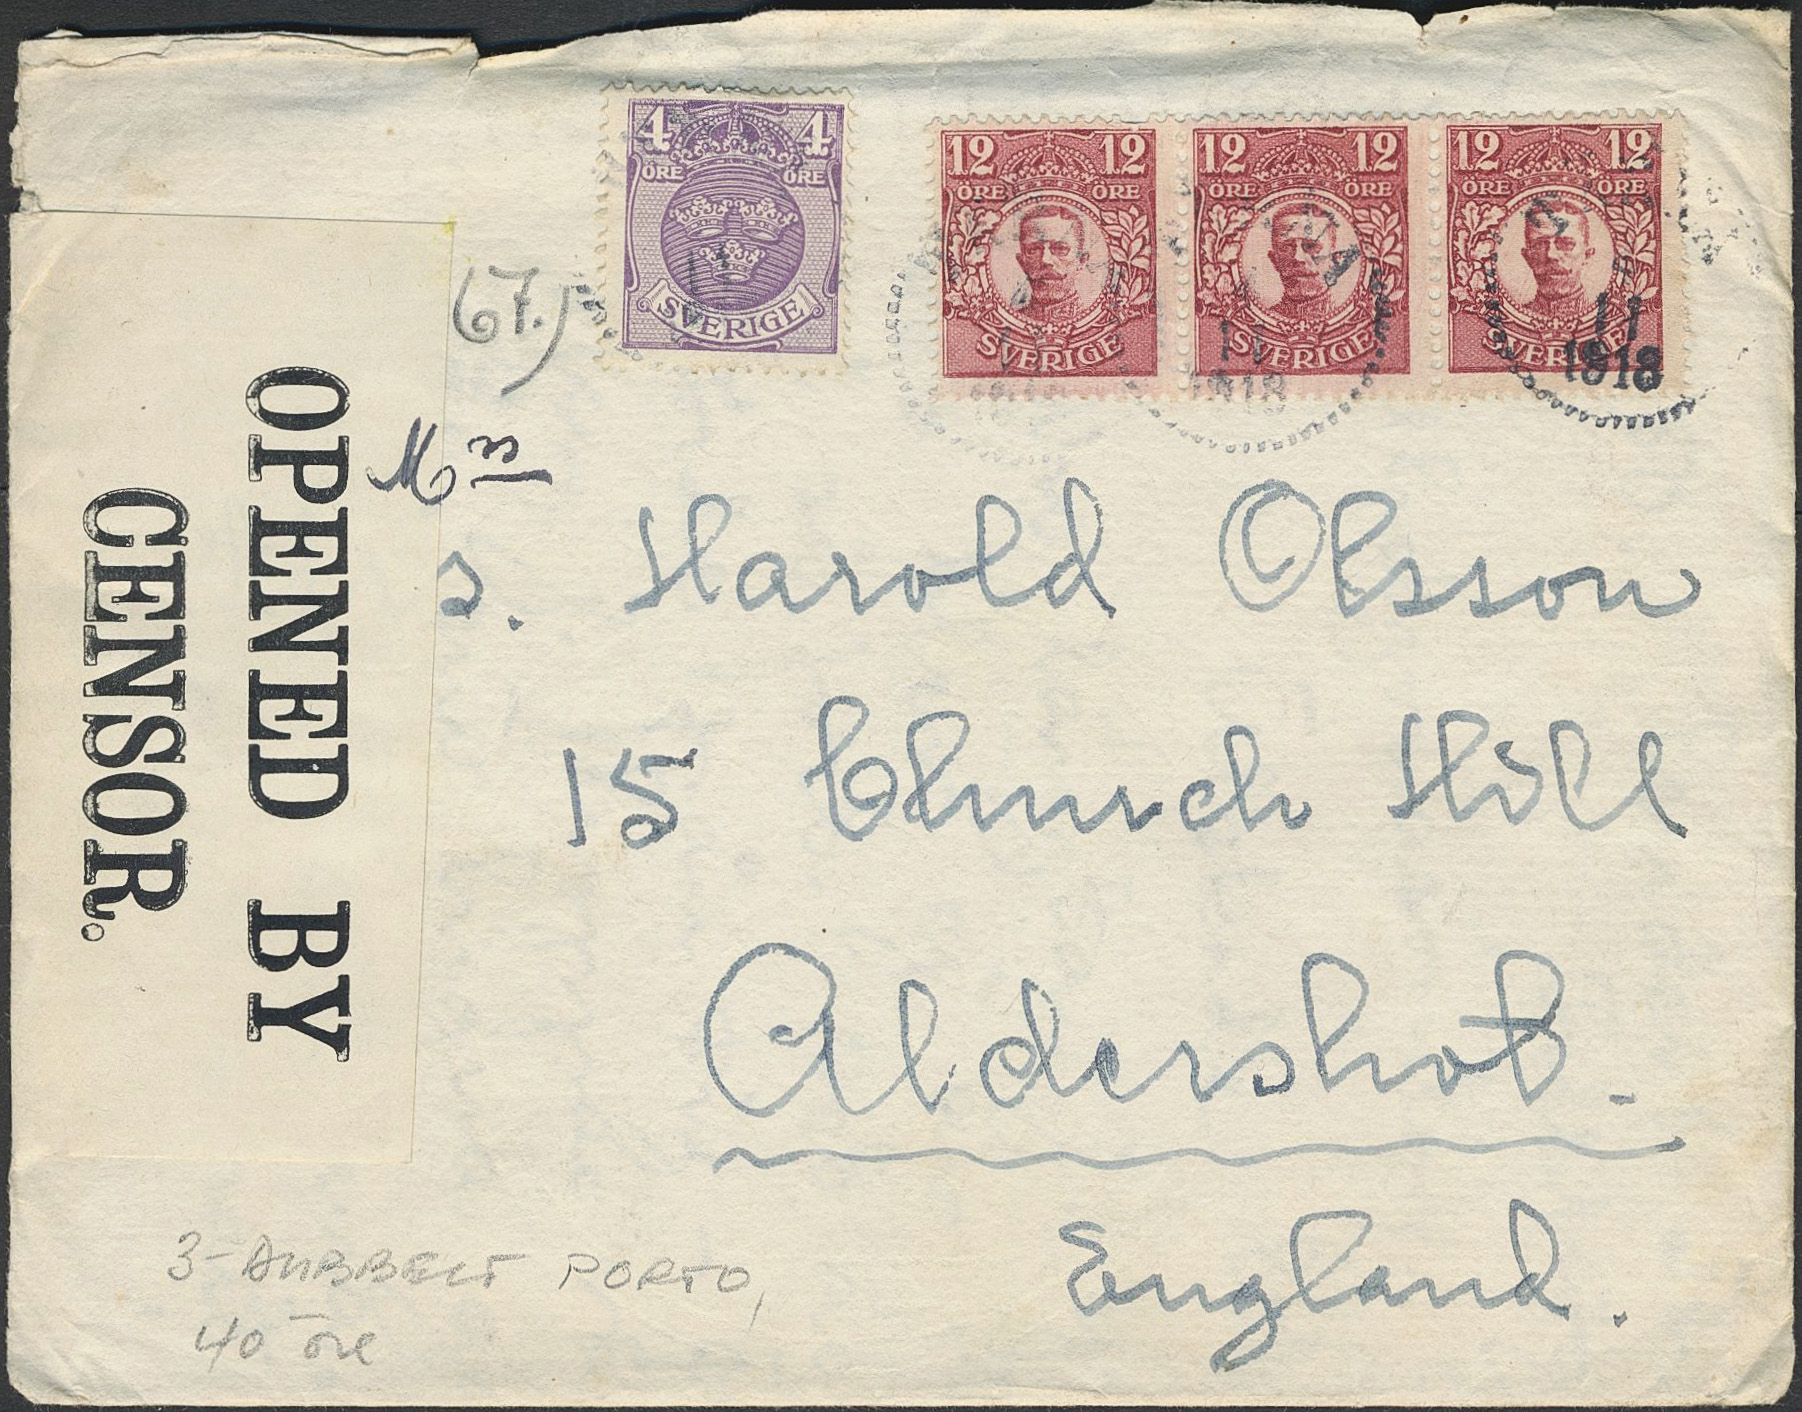 4 4
ÖRE ÖRE
SVERIGE
12 12
ÖRE ÖRE
SVERIGE
12 12
ÖRE ÖRE
SVERIGE
12 12
ÖRE ÖRE
SVERIGE
11
11
1918
11
1918
67.)
OPENED BY
CENSOR.
Mrs
s. Harold Olsson
15 Church Hill
Aldershot.
England.
3-DUBBELT PORTO,
40 öre